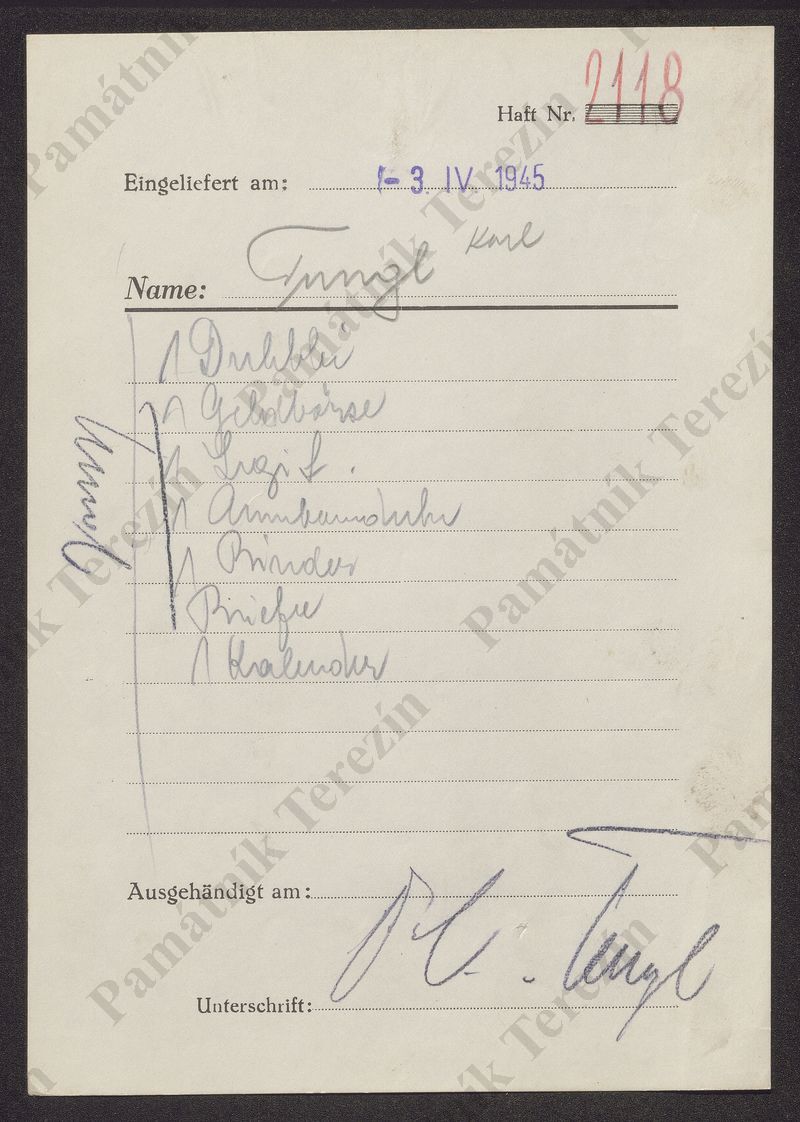 Haft Nr. 2118
Eingeliefert am: - 3. IV. 1945
Name: Karl
1
1 Geldbörse
1 Legit.
1 Armbanduhr
1 Binder
Briefe
1 Kalender
Ausgehändigt am:
Unterschrift:
Památník Terezín